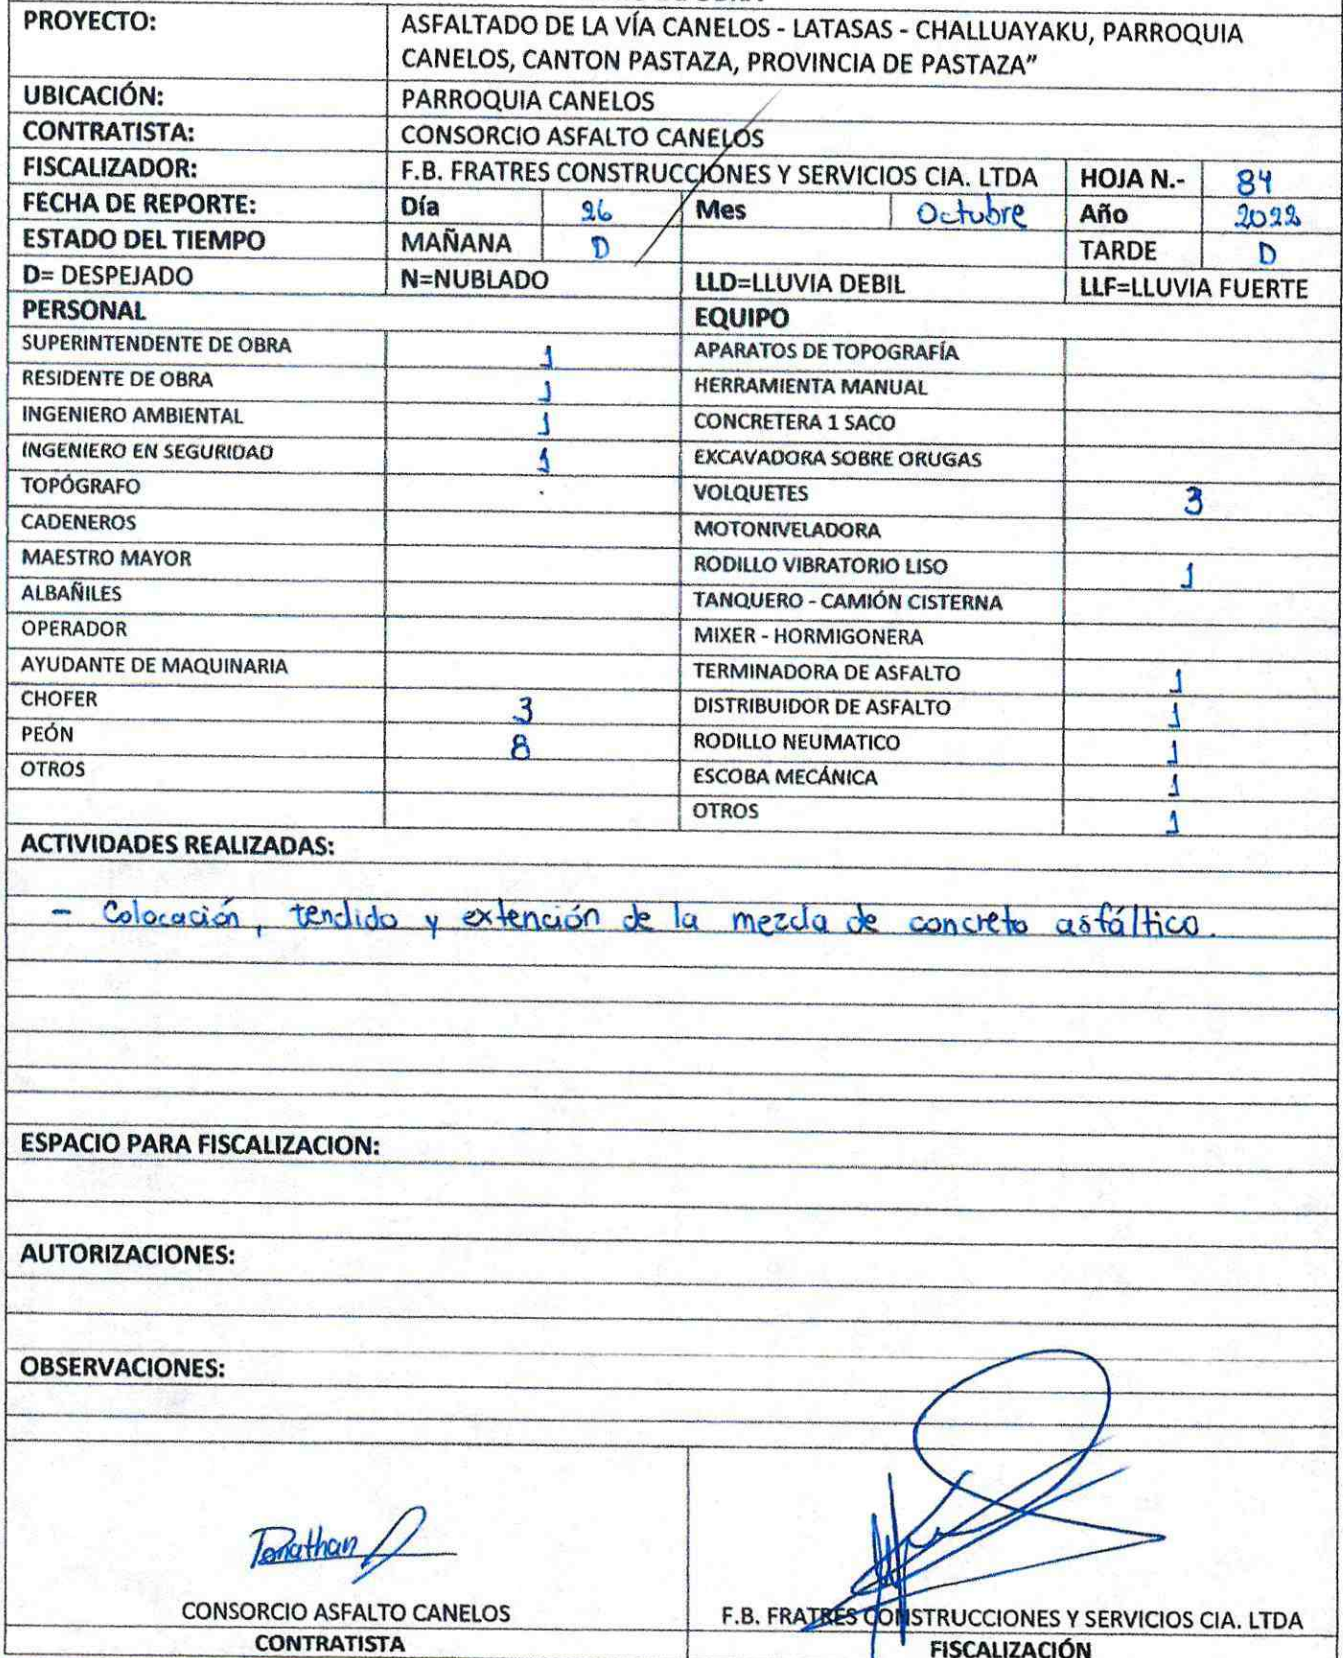 PROYECTO: ASFALTADO DE LA VÍA CANELOS - LATASAS - CHALLUAYAKU, PARROQUIA
CANELOS, CANTON PASTAZA, PROVINCIA DE PASTAZA”
UBICACIÓN: PARROQUIA CANELOS
CONTRATISTA: CONSORCIO ASFALTO CANELOS
FISCALIZADOR: F.B. FRATRES CONSTRUCCIONES Y SERVICIOS CIA. LTDA HOJA N.- 84
FECHA DE REPORTE: Día 26 Mes Octubre Año 2022
ESTADO DEL TIEMPO MAÑANA D TARDE D
D= DESPEJADO N=NUBLADO LLD=LLUVIA DEBIL LLF=LLUVIA FUERTE
PERSONAL EQUIPO
SUPERINTENDENTE DE OBRA 1 APARATOS DE TOPOGRAFÍA
RESIDENTE DE OBRA 1 HERRAMIENTA MANUAL
INGENIERO AMBIENTAL 1 CONCRETERA 1 SACO
INGENIERO EN SEGURIDAD 1 EXCAVADORA SOBRE ORUGAS
TOPÓGRAFO VOLQUETES 3
CADENEROS MOTONIVELADORA
MAESTRO MAYOR RODILLO VIBRATORIO LISO 1
ALBAÑILES TANQUERO - CAMIÓN CISTERNA
OPERADOR MIXER - HORMIGONERA
AYUDANTE DE MAQUINARIA TERMINADORA DE ASFALTO 1
CHOFER 3 DISTRIBUIDOR DE ASFALTO 1
PEÓN 8 RODILLO NEUMATICO 1
OTROS ESCOBA MECÁNICA 1
OTROS 1
ACTIVIDADES REALIZADAS:
- Colocación, tendido y extención de la mezcla de concreto asfáltico.
ESPACIO PARA FISCALIZACION:
AUTORIZACIONES:
OBSERVACIONES:
CONSORCIO ASFALTO CANELOS F.B. FRATRES CONSTRUCCIONES Y SERVICIOS CIA. LTDA
CONTRATISTA FISCALIZACIÓN